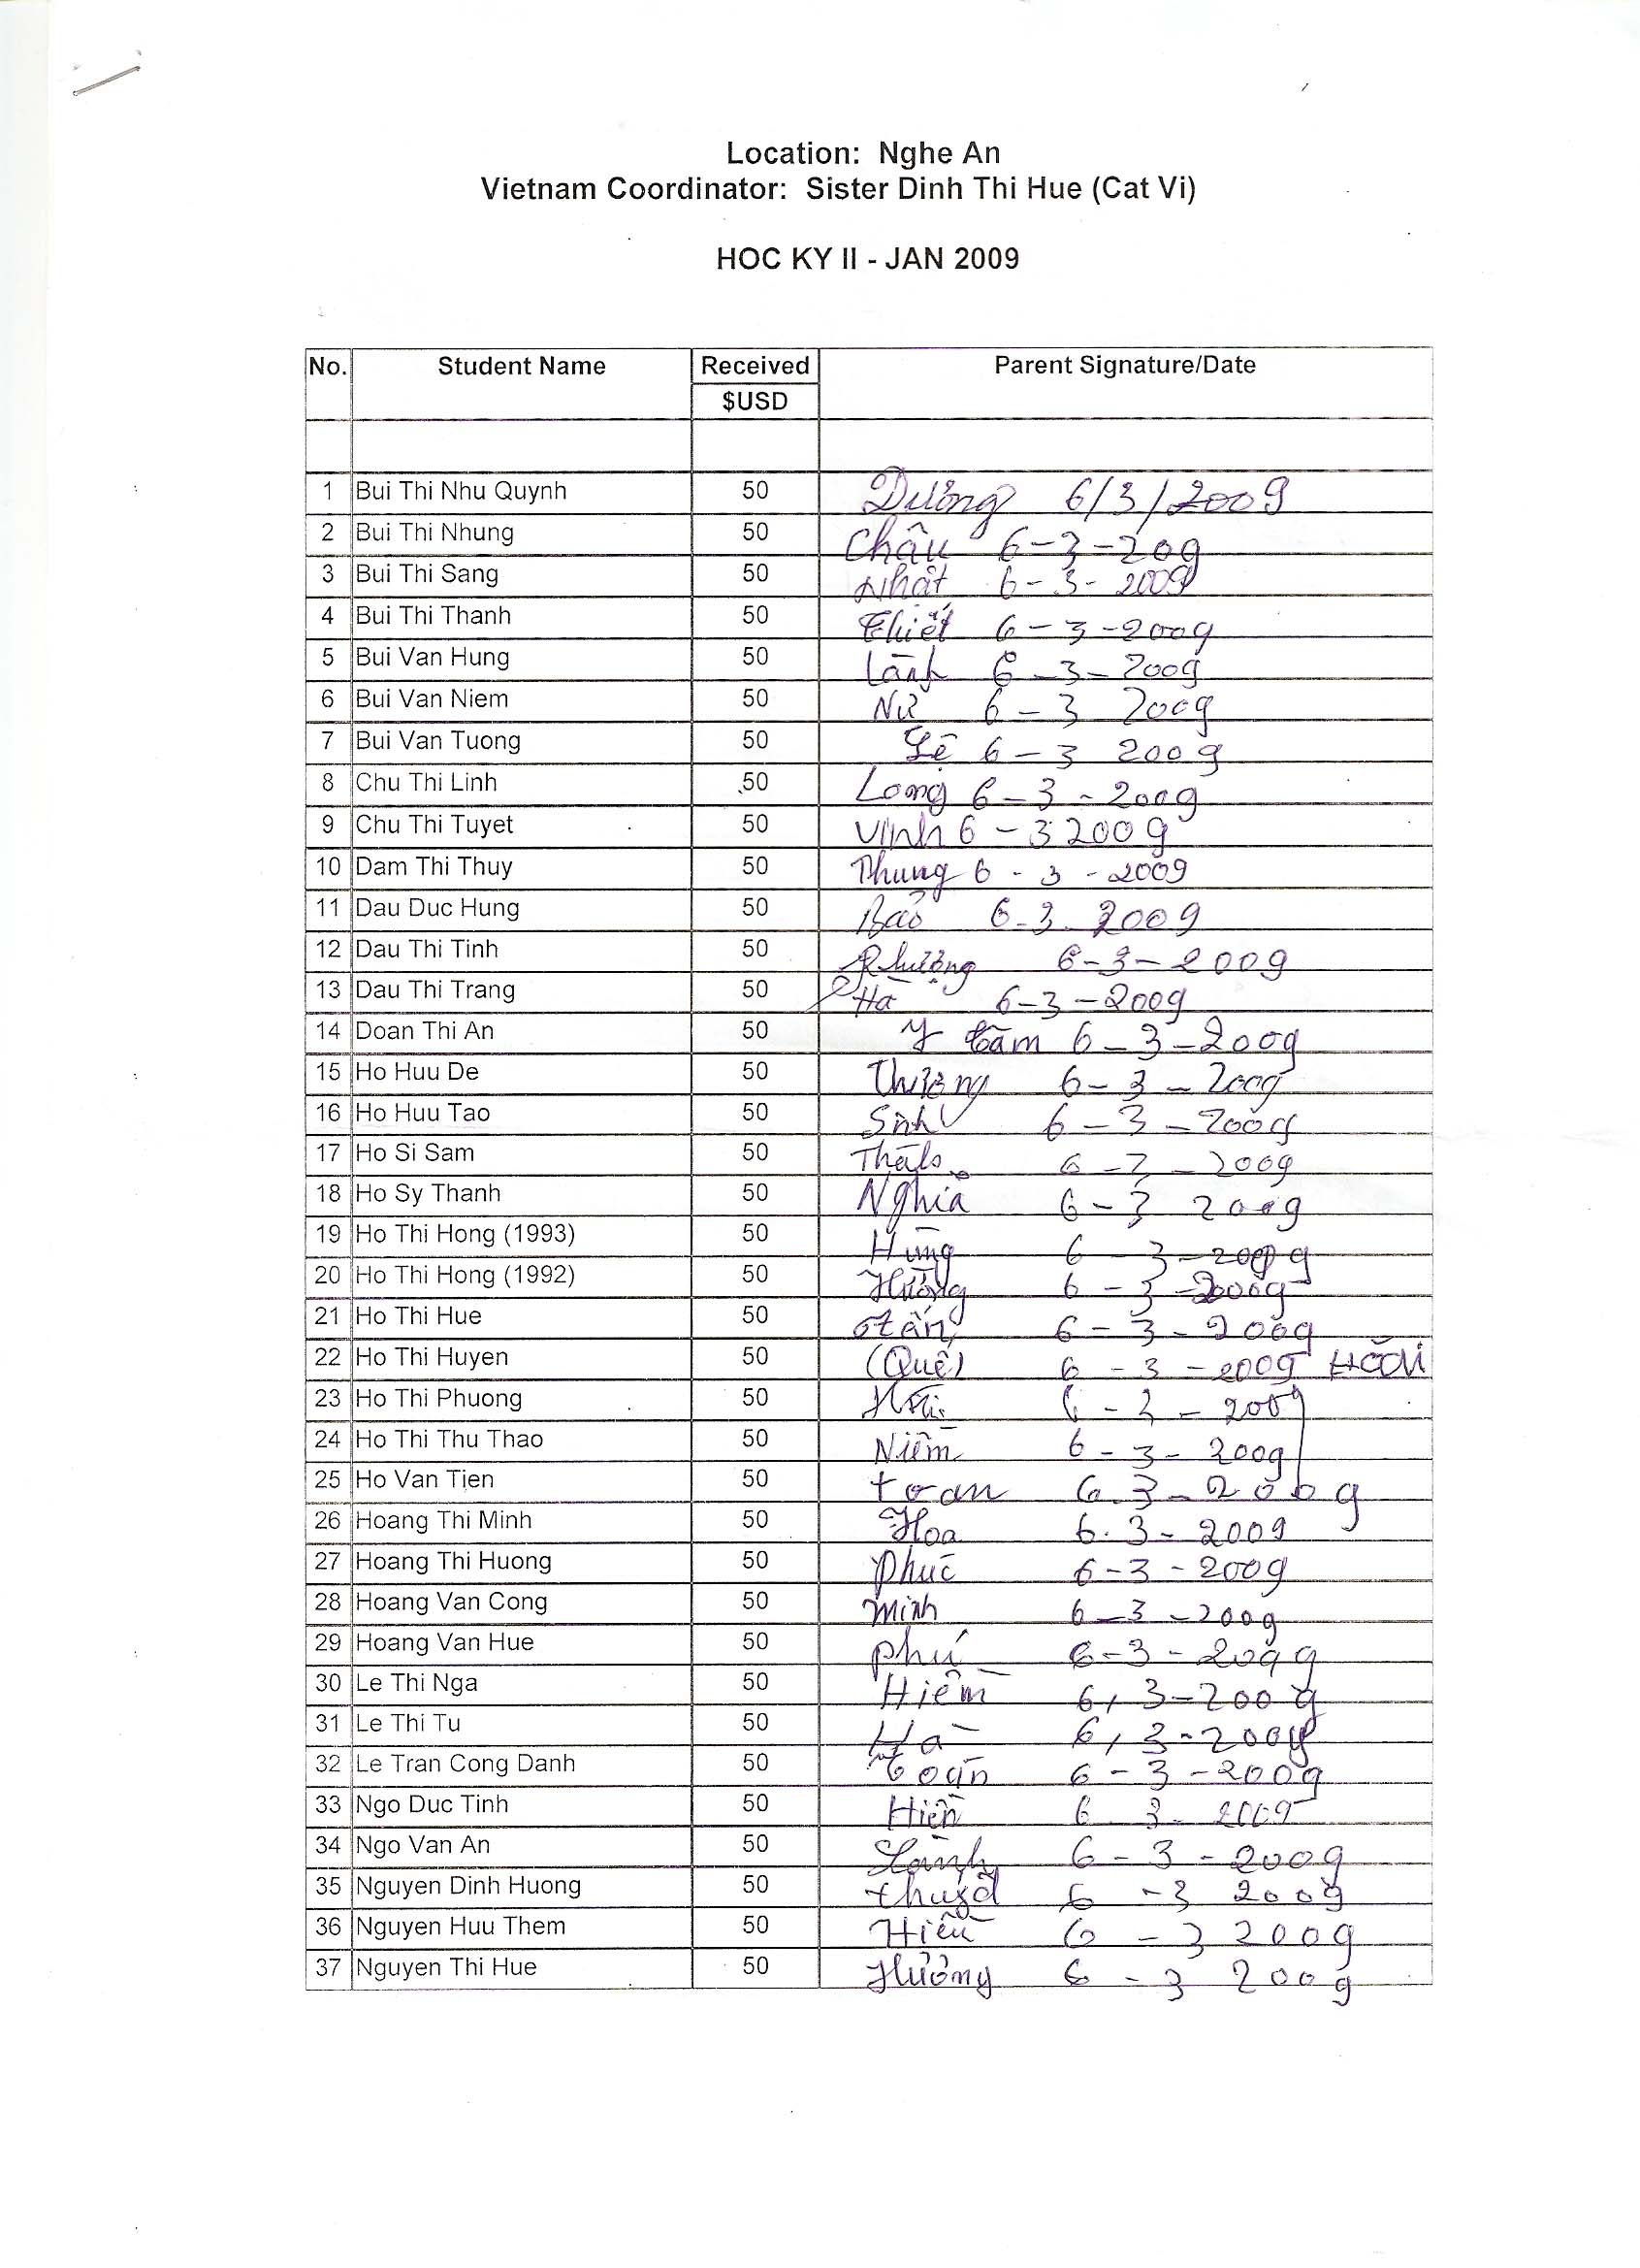 Location: Nghe An
Vietnam Coordinator: Sister Dinh Thi Hue (Cat Vi)
HOC KY II - JAN 2009
No. Student Name Received Parent Signature/Date
$USD
1 Bui Thi Nhu Quynh 50 Dương 6/3/2009
2 Bui Thi Nhung 50 Châu 6-3-2009
3 Bui Thi Sang 50 Nhất 6-3-2009
4 Bui Thi Thanh 50 Thiết 6-3-2009
5 Bui Van Hung 50 Lành 6-3-2009
6 Bui Van Niem 50 6-3 2009
7 Bui Van Tuong 50 6-3 2009
8 Chu Thi Linh 50 Long 6-3-2009
9 Chu Thi Tuyet 50 Vinh 6-3 2009
10 Dam Thi Thuy 50 Thung 6-3-2009
11 Dau Duc Hung 50 Bảo 6-3.2009
12 Dau Thi Tinh 50 6-3-2009
13 Dau Thi Trang 50 Hà 6-3-2009
14 Doan Thi An 50 6-3-2009
15 Ho Huu De 50 Thương 6-3-2009
16 Ho Huu Tao 50 6-3-2009
17 Ho Si Sam 50 2009
18 Ho Sy Thanh 50 Nghia 6-3 2009
19 Ho Thi Hong (1993) 50 Hùng 6-3-2009
20 Ho Thi Hong (1992) 50 6-3-2009
21 Ho Thi Hue 50 6-3-2009
22 Ho Thi Huyen 50 (Quế) 6-3-2009
23 Ho Thi Phuong 50 6-3-2009
24 Ho Thi Thu Thao 50 Niêm 6-3-2009
25 Ho Van Tien 50 toan 6.3-2009
26 Hoang Thi Minh 50 Hoa 6.3-2009
27 Hoang Thi Huong 50 Phúc 6-3-2009
28 Hoang Van Cong 50 Minh 6-3-2009
29 Hoang Van Hue 50 phú 6-3-2009
30 Le Thi Nga 50 6,3-2009
31 Le Thi Tu 50 Hà 6,3-2009
32 Le Tran Cong Danh 50 6-3-2009
33 Ngo Duc Tinh 50 Hiền 6 3-2009
34 Ngo Van An 50 6-3-2009
35 Nguyen Dinh Huong 50 6-3 2009
36 Nguyen Huu Them 50 6-3 2009
37 Nguyen Thi Hue 50 Hường 6-3 2009